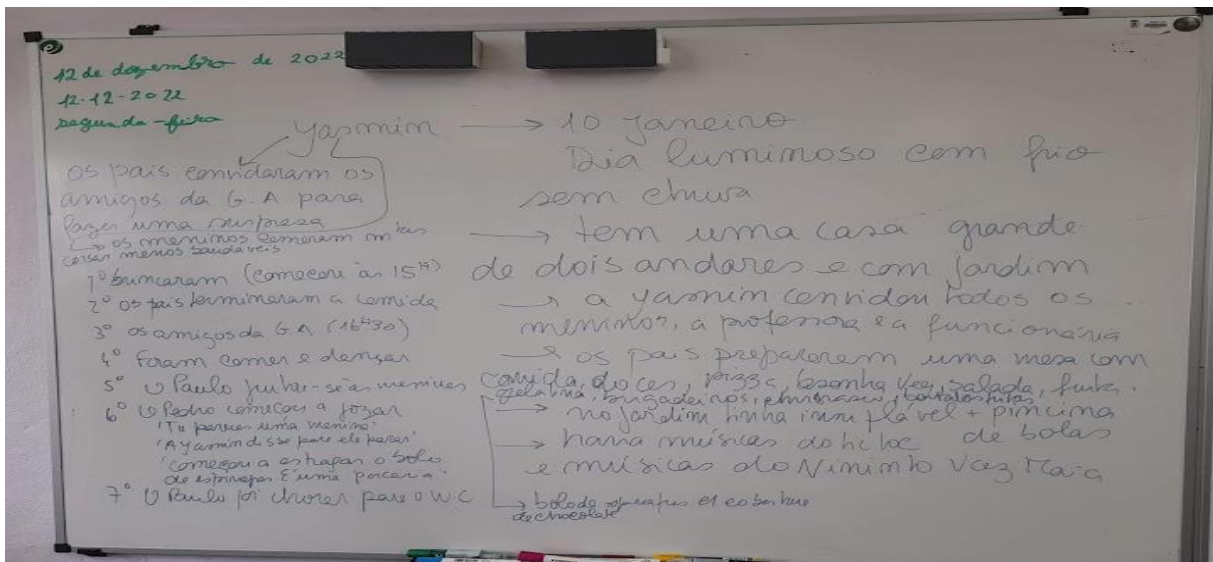 12 de dezembro de 2022
12-12-2022
segunda-feira
Yasmim → 10 Janeiro
Dia luminoso com frio
sem chuva
os pais convidaram os
amigos da G.A para
fazer uma surpresa
↳ os meninos comeram mtas
coisas menos saudáveis
1º brincaram (começou às 15H)
2º os pais terminaram a comida
3º os amigos da G.A (16H30)
4º Foram comer e dançar
5º O Paulo juntar-se às meninas
6º O Pedro começou a gozar
'Tu pareces uma menina'
'A Yasmin disse para ele parar'
'começou a estragar o bolo
de espinafres. É uma porcaria'
7º O Paulo foi chorar para o WC
→ tem uma casa grande
de dois andares e com jardim
→ a Yasmim convidou todos os
meninos, a professora e a funcionária
→ os pais prepararem uma mesa com
comida, doces, pizza, lasanha veg, salada, fruta.
gelatina, brigadeiros, batatas fritas
→ no jardim tinha insuflável + piscina
de bolas
→ havia músicas do
e músicas do Nininho Vaz Maia
→ bolo de espinafres c/ cobertura
de chocolate